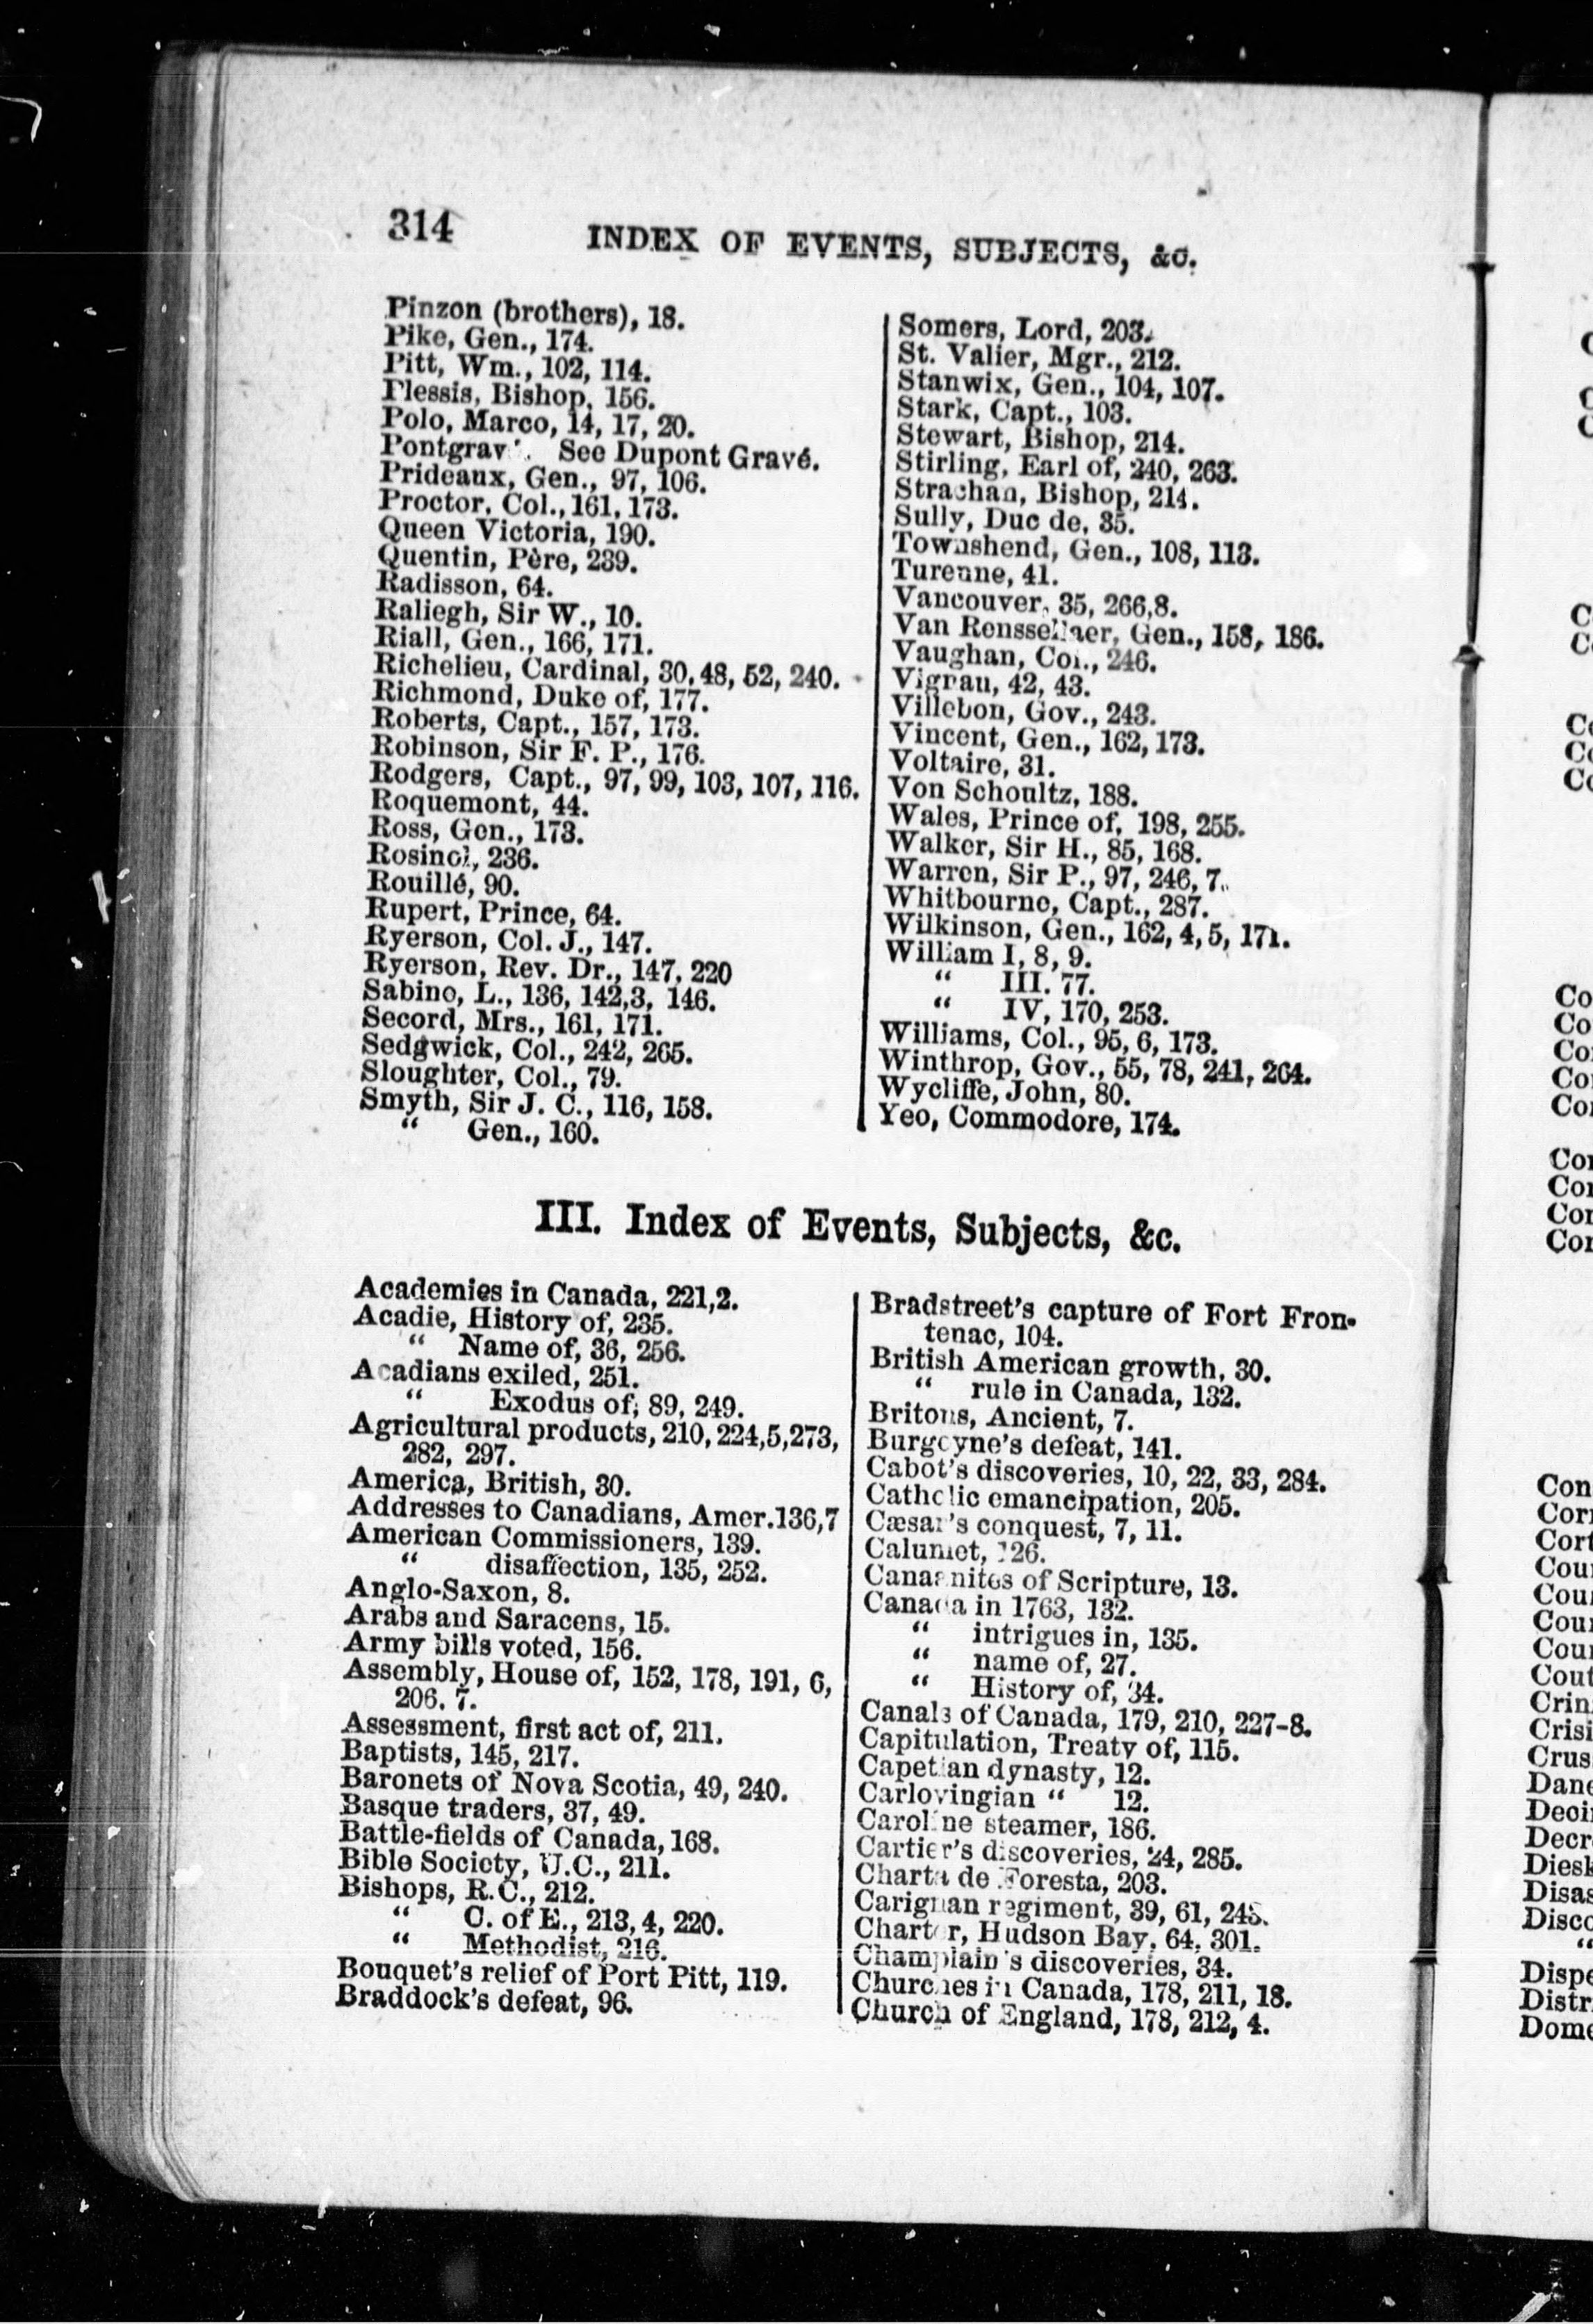 314
INDEX OF EVENTS, SUBJECTS, &c.
Pinzon (brothers), 18.
Pike, Gen., 174.
Pitt, Wm., 102, 114.
Plessis, Bishop, 156.
Polo, Marco, 14, 17, 20.
Pontgrav. See Dupont Gravé.
Prideaux, Gen., 97, 106.
Proctor, Col., 161, 173.
Queen Victoria, 190.
Quentin, Père, 239.
Radisson, 64.
Raliegh, Sir W., 10.
Riall, Gen., 166, 171.
Richelieu, Cardinal, 30, 48, 52, 240.
Richmond, Duke of, 177.
Roberts, Capt., 157, 173.
Robinson, Sir F. P., 176.
Rodgers, Capt., 97, 99, 103, 107, 116.
Roquemont, 44.
Ross, Gen., 173.
Rosinol, 236.
Rouillé, 90.
Rupert, Prince, 64.
Ryerson, Col. J., 147.
Ryerson, Rev. Dr., 147, 220
Sabine, L., 136, 142,3, 146.
Secord, Mrs., 161, 171.
Sedgwick, Col., 242, 265.
Sloughter, Col., 79.
Smyth, Sir J. C., 116, 158.
“ Gen., 160.
Somers, Lord, 203.
St. Valier, Mgr., 212.
Stanwix, Gen., 104, 107.
Stark, Capt., 103.
Stewart, Bishop, 214.
Stirling, Earl of, 240, 263.
Strachan, Bishop, 214.
Sully, Duc de, 35.
Townshend, Gen., 108, 113.
Turenne, 41.
Vancouver, 35, 266,8.
Van Renssellaer, Gen., 158, 186.
Vaughan, Col., 246.
Vignau, 42, 43.
Villebon, Gov., 243.
Vincent, Gen., 162, 173.
Voltaire, 31.
Von Schoultz, 188.
Wales, Prince of, 198, 255.
Walker, Sir H., 85, 168.
Warren, Sir P., 97, 246, 7.
Whitbourne, Capt., 287.
Wilkinson, Gen., 162, 4, 5, 171.
William I, 8, 9.
“ III. 77.
“ IV, 170, 253.
Williams, Col., 95, 6, 173.
Winthrop, Gov., 55, 78, 241, 264.
Wycliffe, John, 80.
Yeo, Commodore, 174.
III. Index of Events, Subjects, &c.
Academies in Canada, 221,2.
Acadie, History of, 235.
“ Name of, 36, 256.
Acadians exiled, 251.
“ Exodus of, 89, 249.
Agricultural products, 210, 224,5,273,
282, 297.
America, British, 30.
Addresses to Canadians, Amer.136,7
American Commissioners, 139.
“ disaffection, 135, 252.
Anglo-Saxon, 8.
Arabs and Saracens, 15.
Army bills voted, 156.
Assembly, House of, 152, 178, 191, 6,
206, 7.
Assessment, first act of, 211.
Baptists, 145, 217.
Baronets of Nova Scotia, 49, 240.
Basque traders, 37, 49.
Battle-fields of Canada, 168.
Bible Society, U.C., 211.
Bishops, R.C., 212.
“ C. of E., 213, 4, 220.
“ Methodist, 216.
Bouquet's relief of Port Pitt, 119.
Braddock's defeat, 96.
Bradstreet's capture of Fort Fron-
tenac, 104.
British American growth, 30.
“ rule in Canada, 132.
Britons, Ancient, 7.
Burgoyne's defeat, 141.
Cabot's discoveries, 10, 22, 33, 284.
Catholic emancipation, 205.
Cæsar's conquest, 7, 11.
Calumet, 126.
Canaanites of Scripture, 13.
Canada in 1763, 132.
“ intrigues in, 135.
“ name of, 27.
“ History of, 34.
Canals of Canada, 179, 210, 227-8.
Capitulation, Treaty of, 115.
Capetian dynasty, 12.
Carlovingian “ 12.
Caroline steamer, 186.
Cartier's discoveries, 24, 285.
Charta de Foresta, 203.
Carignan regiment, 39, 61, 243.
Charter, Hudson Bay, 64, 301.
Champlain's discoveries, 34.
Churches in Canada, 178, 211, 18.
Church of England, 178, 212, 4.